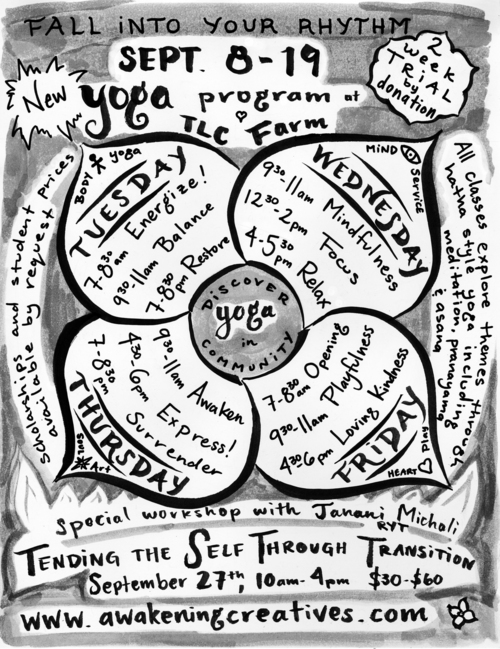 FALL iNTO YOUR RHYTHM
SEPT. 8-19
New
yoga program at
TLC Farm
2
week
TRiAL
by
donation
BODY yoga
TUESDAY
7-8:30 am Energize!
9:30-11am Balance
7-8:30 pm Restore
MiND Service
WEDNESDAY
9:30-11am Mindfulness
12:30-2pm Focus
4-5:30 pm Relax
DiSCOVER
yoga
in
COMMUNITY
THURSDAY
SOUL Art
9:30-11am Awaken
4:30-6pm Express!
7-8:30 pm Surrender
FRiDAY
HEART Play
7-8:30 am Opening
9:30-11am Playfulness
4:30-6pm Loving Kindness
Scholarships and student prices
available by request
All classes explore themes through
hatha style yoga including
meditation, pranayama
& asana
Special workshop with Janani Michali
RYT
TENDING THE SELF THROUGH TRANSITION
September 27th, 10am-4pm $30-$60
www.awakeningcreatives.com